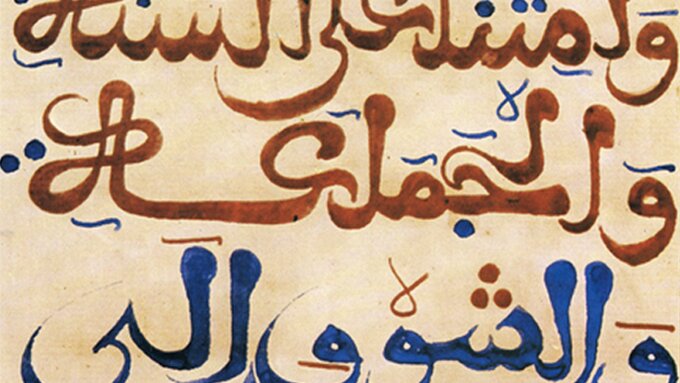 وامتنا على السنة
وَالْجَمَاعَةِ
وَالشوْق إلَى